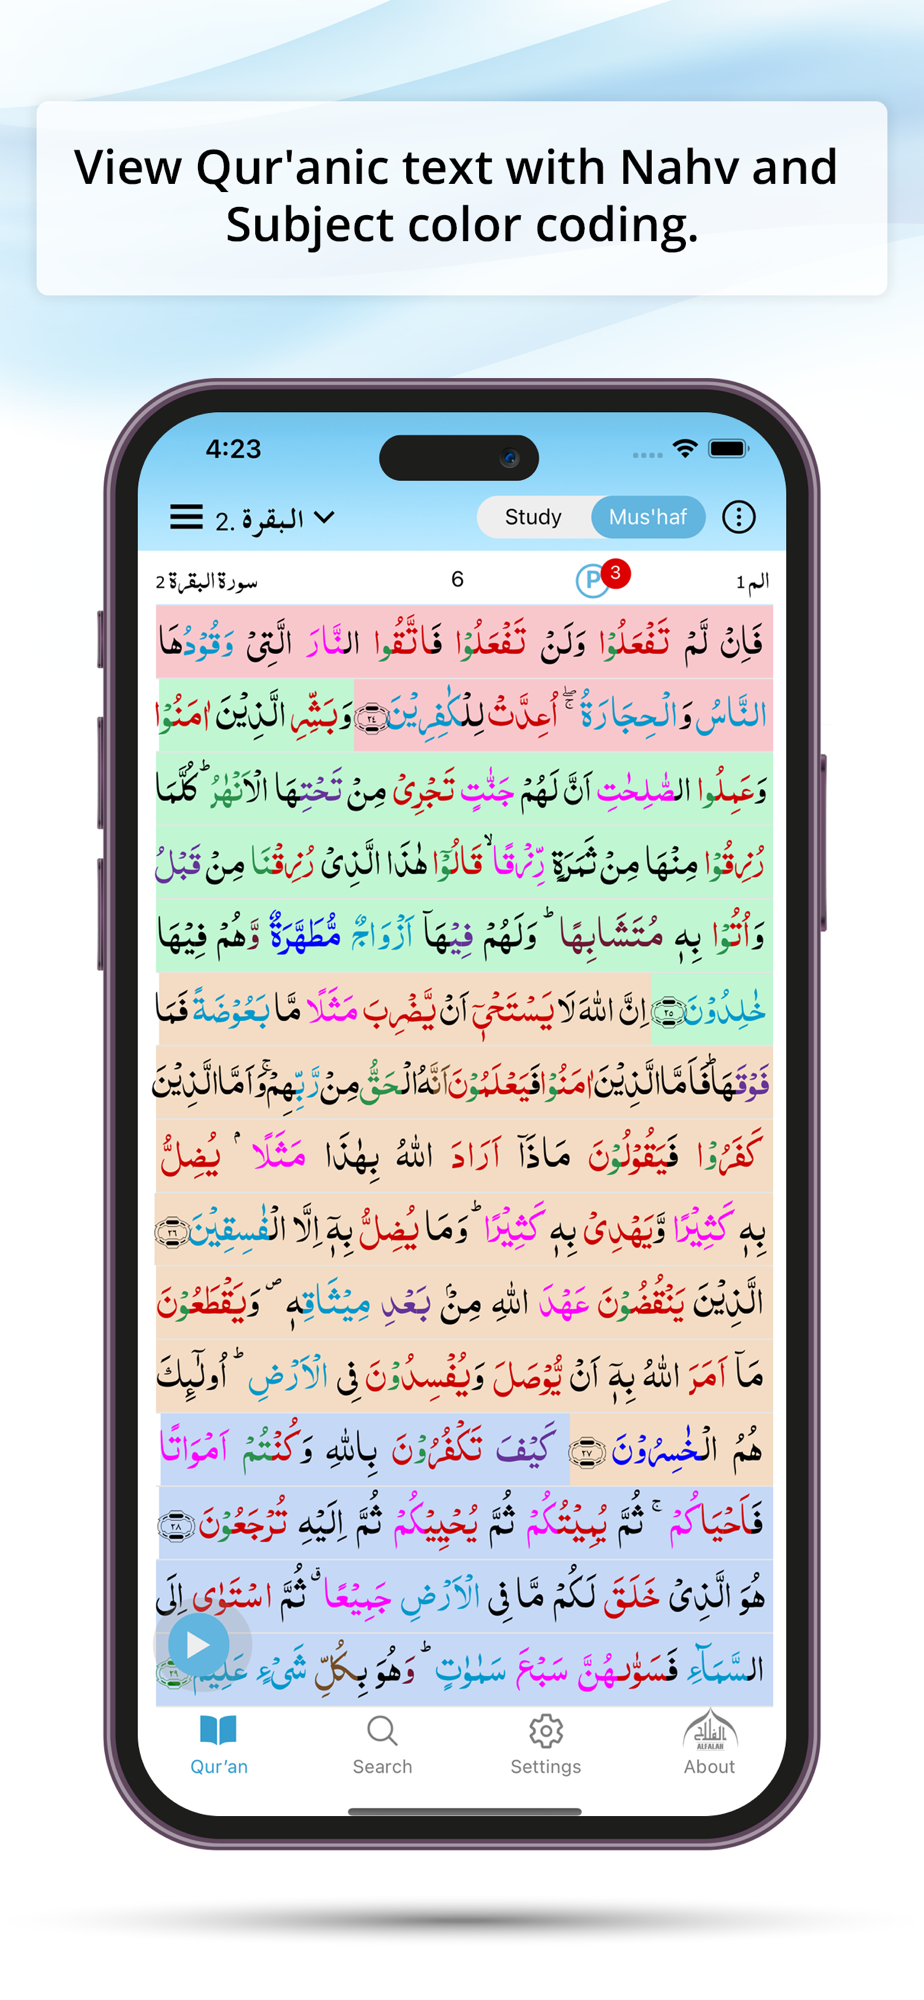 View Qur'anic text with Nahv and
Subject color coding.
4:23
2. البقرة
Study
Mus'haf
سورة البقرة 2
6
P
3
الم 1
فَاِنْ لَّمْ تَفْعَلُوْا وَلَنْ تَفْعَلُوْا فَاتَّقُوا النَّارَ الَّتِیْ وَقُوْدُهَا
النَّاسُ وَالْحِجَارَةُ ۖۚ اُعِدَّتْ لِلْكٰفِرِیْنَ ۝٢٤ وَبَشِّرِ الَّذِیْنَ اٰمَنُوْا
وَعَمِلُوا الصّٰلِحٰتِ اَنَّ لَهُمْ جَنّٰتٍ تَجْرِیْ مِنْ تَحْتِهَا الْاَنْهٰرُ ؕ كُلَّمَا
رُزِقُوْا مِنْهَا مِنْ ثَمَرَةٍ رِّزْقًا ۙ قَالُوْا هٰذَا الَّذِیْ رُزِقْنَا مِنْ قَبْلُ
وَاُتُوْا بِهٖ مُتَشَابِهًا ؕ وَلَهُمْ فِیْهَاۤ اَزْوَاجٌ مُّطَهَّرَةٌ وَّهُمْ فِیْهَا
خٰلِدُوْنَ ۝٢٥ اِنَّ اللّٰهَ لَا یَسْتَحْیٖۤ اَنْ یَّضْرِبَ مَثَلًا مَّا بَعُوْضَةً فَمَا
فَوْقَهَا ؕ فَاَمَّا الَّذِیْنَ اٰمَنُوْا فَیَعْلَمُوْنَ اَنَّهُ الْحَقُّ مِنْ رَّبِّهِمْ ۚ وَاَمَّا الَّذِیْنَ
كَفَرُوْا فَیَقُوْلُوْنَ مَاذَاۤ اَرَادَ اللّٰهُ بِهٰذَا مَثَلًا ۘ یُضِلُّ
بِهٖ كَثِیْرًا وَّیَهْدِیْ بِهٖ كَثِیْرًا ؕ وَمَا یُضِلُّ بِهٖۤ اِلَّا الْفٰسِقِیْنَ ۝٢٦
الَّذِیْنَ یَنْقُضُوْنَ عَهْدَ اللّٰهِ مِنْۢ بَعْدِ مِیْثَاقِهٖ ۪ وَیَقْطَعُوْنَ
مَاۤ اَمَرَ اللّٰهُ بِهٖۤ اَنْ یُّوْصَلَ وَیُفْسِدُوْنَ فِی الْاَرْضِ ؕ اُولٰٓئِكَ
هُمُ الْخٰسِرُوْنَ ۝٢٧ كَیْفَ تَكْفُرُوْنَ بِاللّٰهِ وَكُنْتُمْ اَمْوَاتًا
فَاَحْیَاكُمْ ۚ ثُمَّ یُمِیْتُكُمْ ثُمَّ یُحْیِیْكُمْ ثُمَّ اِلَیْهِ تُرْجَعُوْنَ ۝٢٨
هُوَ الَّذِیْ خَلَقَ لَكُمْ مَّا فِی الْاَرْضِ جَمِیْعًا ۗ ثُمَّ اسْتَوٰۤی اِلَی
السَّمَآءِ فَسَوّٰىهُنَّ سَبْعَ سَمٰوٰتٍ ؕ وَهُوَ بِكُلِّ شَیْءٍ عَلِیْمٌ ۝٢٩
Qur'an
Search
Settings
الفلاح
ALFALAH
About